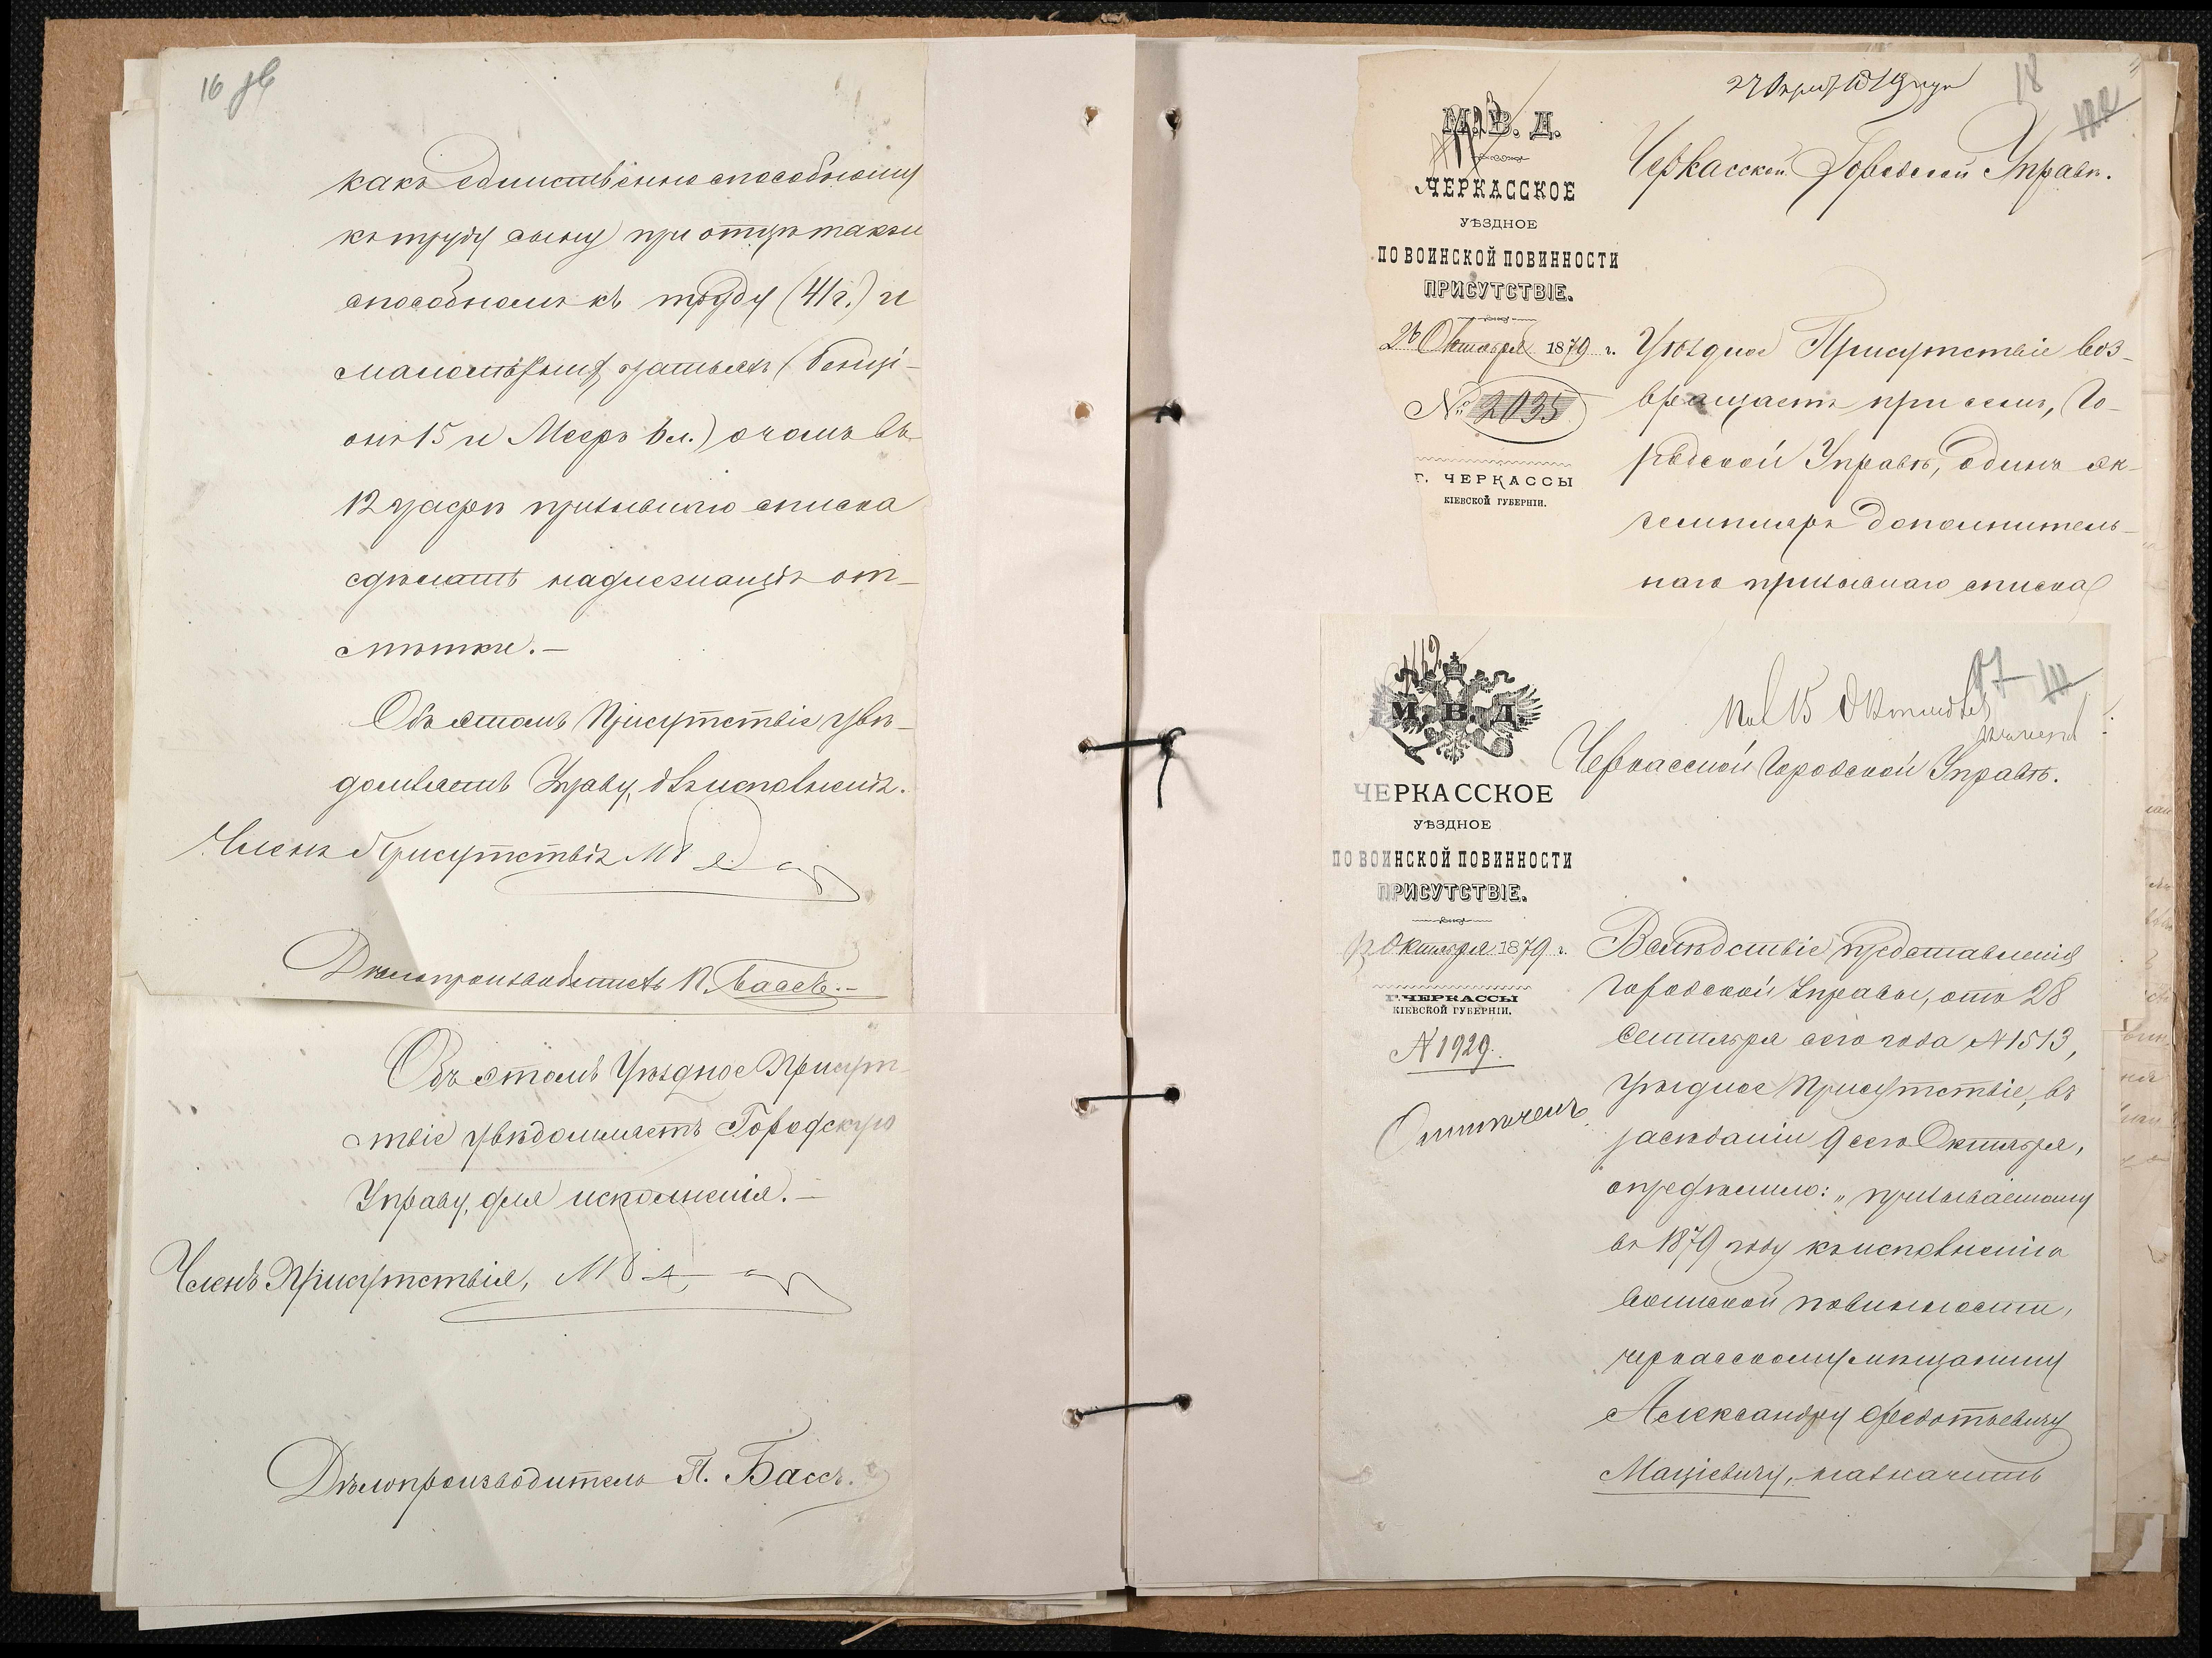 16
какъ единственно способному
къ труду сыну при отцѣ также
способномъ къ труду (41 г.) и
малолѣтнихъ братьяхъ (Бенці-
онъ 15 и Мееръ 6 л.) о чемъ въ
12 графѣ призывнаго списка
сдѣлать надлежащія от-
мѣтки.—
Объ этомъ Присутствіе увѣ-
домляетъ Управу, для исполненія.
Членъ Присутствія
Дѣлопроизводитель П. Бассъ.—
Объ этомъ Уѣздное Присут-
ствіе увѣдомляетъ Городскую
Управу, для исполненія.—
Членъ Присутствія,
Дѣлопроизводитель П. Бассъ.
18
М. В. Д.
ЧЕРКАССКОЕ
УѢЗДНОЕ
ПО ВОИНСКОЙ ПОВИННОСТИ
ПРИСУТСТВІЕ.
26 Октября 1879 г.
№ 2035
Г. ЧЕРКАССЫ
КІЕВСКОЙ ГУБЕРНІИ.
Черкасской Городской Управѣ.
Уѣздное Присутствіе воз-
вращаетъ при семъ, Го-
родской Управѣ, одинъ эк-
земпляръ дополнитель-
наго призывнаго списка
17
М. В. Д.
ЧЕРКАССКОЕ
УѢЗДНОЕ
ПО ВОИНСКОЙ ПОВИННОСТИ
ПРИСУТСТВІЕ.
Октября 1879 г.
Г. ЧЕРКАССЫ
КІЕВСКОЙ ГУБЕРНІИ.
№ 1929.
Отмѣчено
Пол 15 Октября
Черкасской Городской Управѣ.
Вслѣдствіе представленія
Городской Управы, отъ 28
Сентября сего года № 1513,
Уѣздное Присутствіе, въ
засѣданіи 9 сего Октября,
опредѣлило: „призываемому
въ 1879 году къ исполненію
воинской повинности,
черкасскому мѣщанину
Александру Федотьевичу
Мацієвичу, назначить